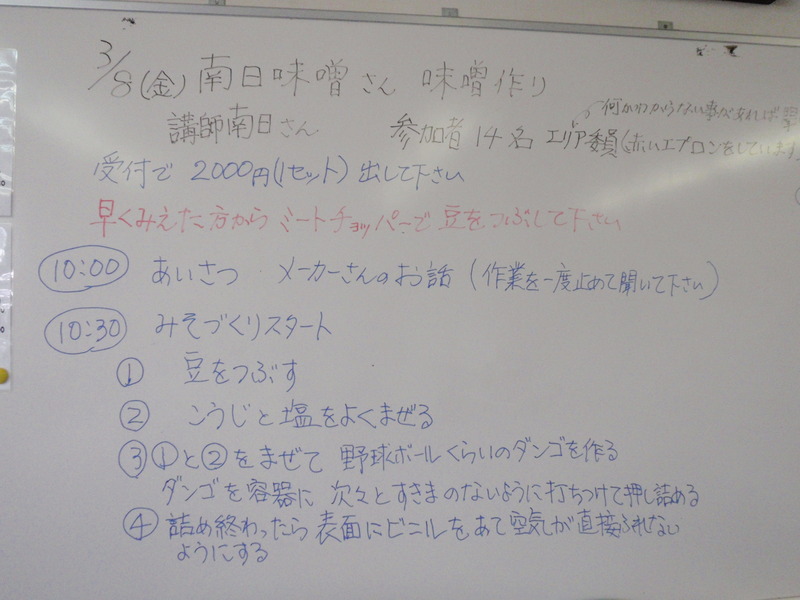 3/8(金) 南日味噌さん 味噌作り
何かわからない事があれば
講師南日さん 参加者 14名 エリア委員(赤いエプロンをしています
受付で 2000円(1セット) 出して下さい
早くみえた方から ミートチョッパーで 豆をつぶして下さい
10:00 あいさつ メーカーさんのお話 (作業を一度止めて聞いて下さい)
10:30 みそづくりスタート
① 豆をつぶす
② こうじと塩をよくまぜる
③ ①と②をまぜて 野球ボールくらいのダンゴを作る
ダンゴを容器に 次々とすきまのないように打ちつけて押し詰める
④ 詰め終わったら表面にビニルをあて空気が直接ふれない
ようにする